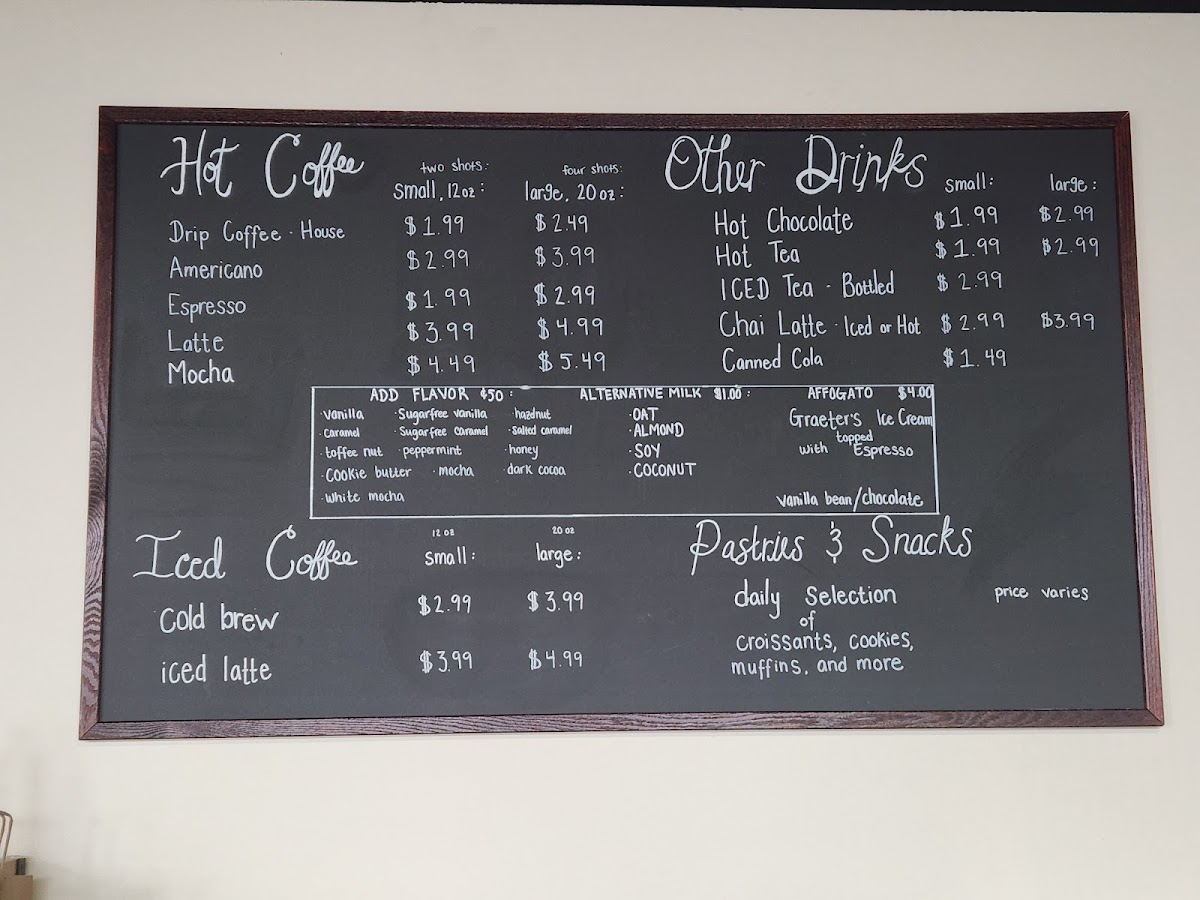 Hot Coffee
two shots: four shots:
small, 12oz: large, 20oz:
Drip Coffee · House $1.99 $2.49
Americano $2.99 $3.99
Espresso $1.99 $2.99
Latte $3.99 $4.99
Mocha $4.49 $5.49
Other Drinks
small: large:
Hot Chocolate $1.99 $2.99
Hot Tea $1.99 $2.99
ICED Tea - Bottled $2.99
Chai Latte · Iced or Hot $2.99 $3.99
Canned Cola $1.49
ADD FLAVOR $50:
·vanilla ·Sugarfree vanilla ·hazelnut
·caramel ·Sugarfree caramel ·salted caramel
·toffee nut ·peppermint ·honey
·cookie butter ·mocha ·dark cocoa
·white mocha
ALTERNATIVE MILK $1.00:
·OAT
·ALMOND
·SOY
·COCONUT
AFFOGATO $4.00
Graeter's Ice Cream
topped
with Espresso
vanilla bean/chocolate
Iced Coffee
12 oz 20 oz
small: large:
cold brew $2.99 $3.99
iced latte $3.99 $4.99
Pastries & Snacks
daily selection price varies
of
croissants, cookies,
muffins, and more